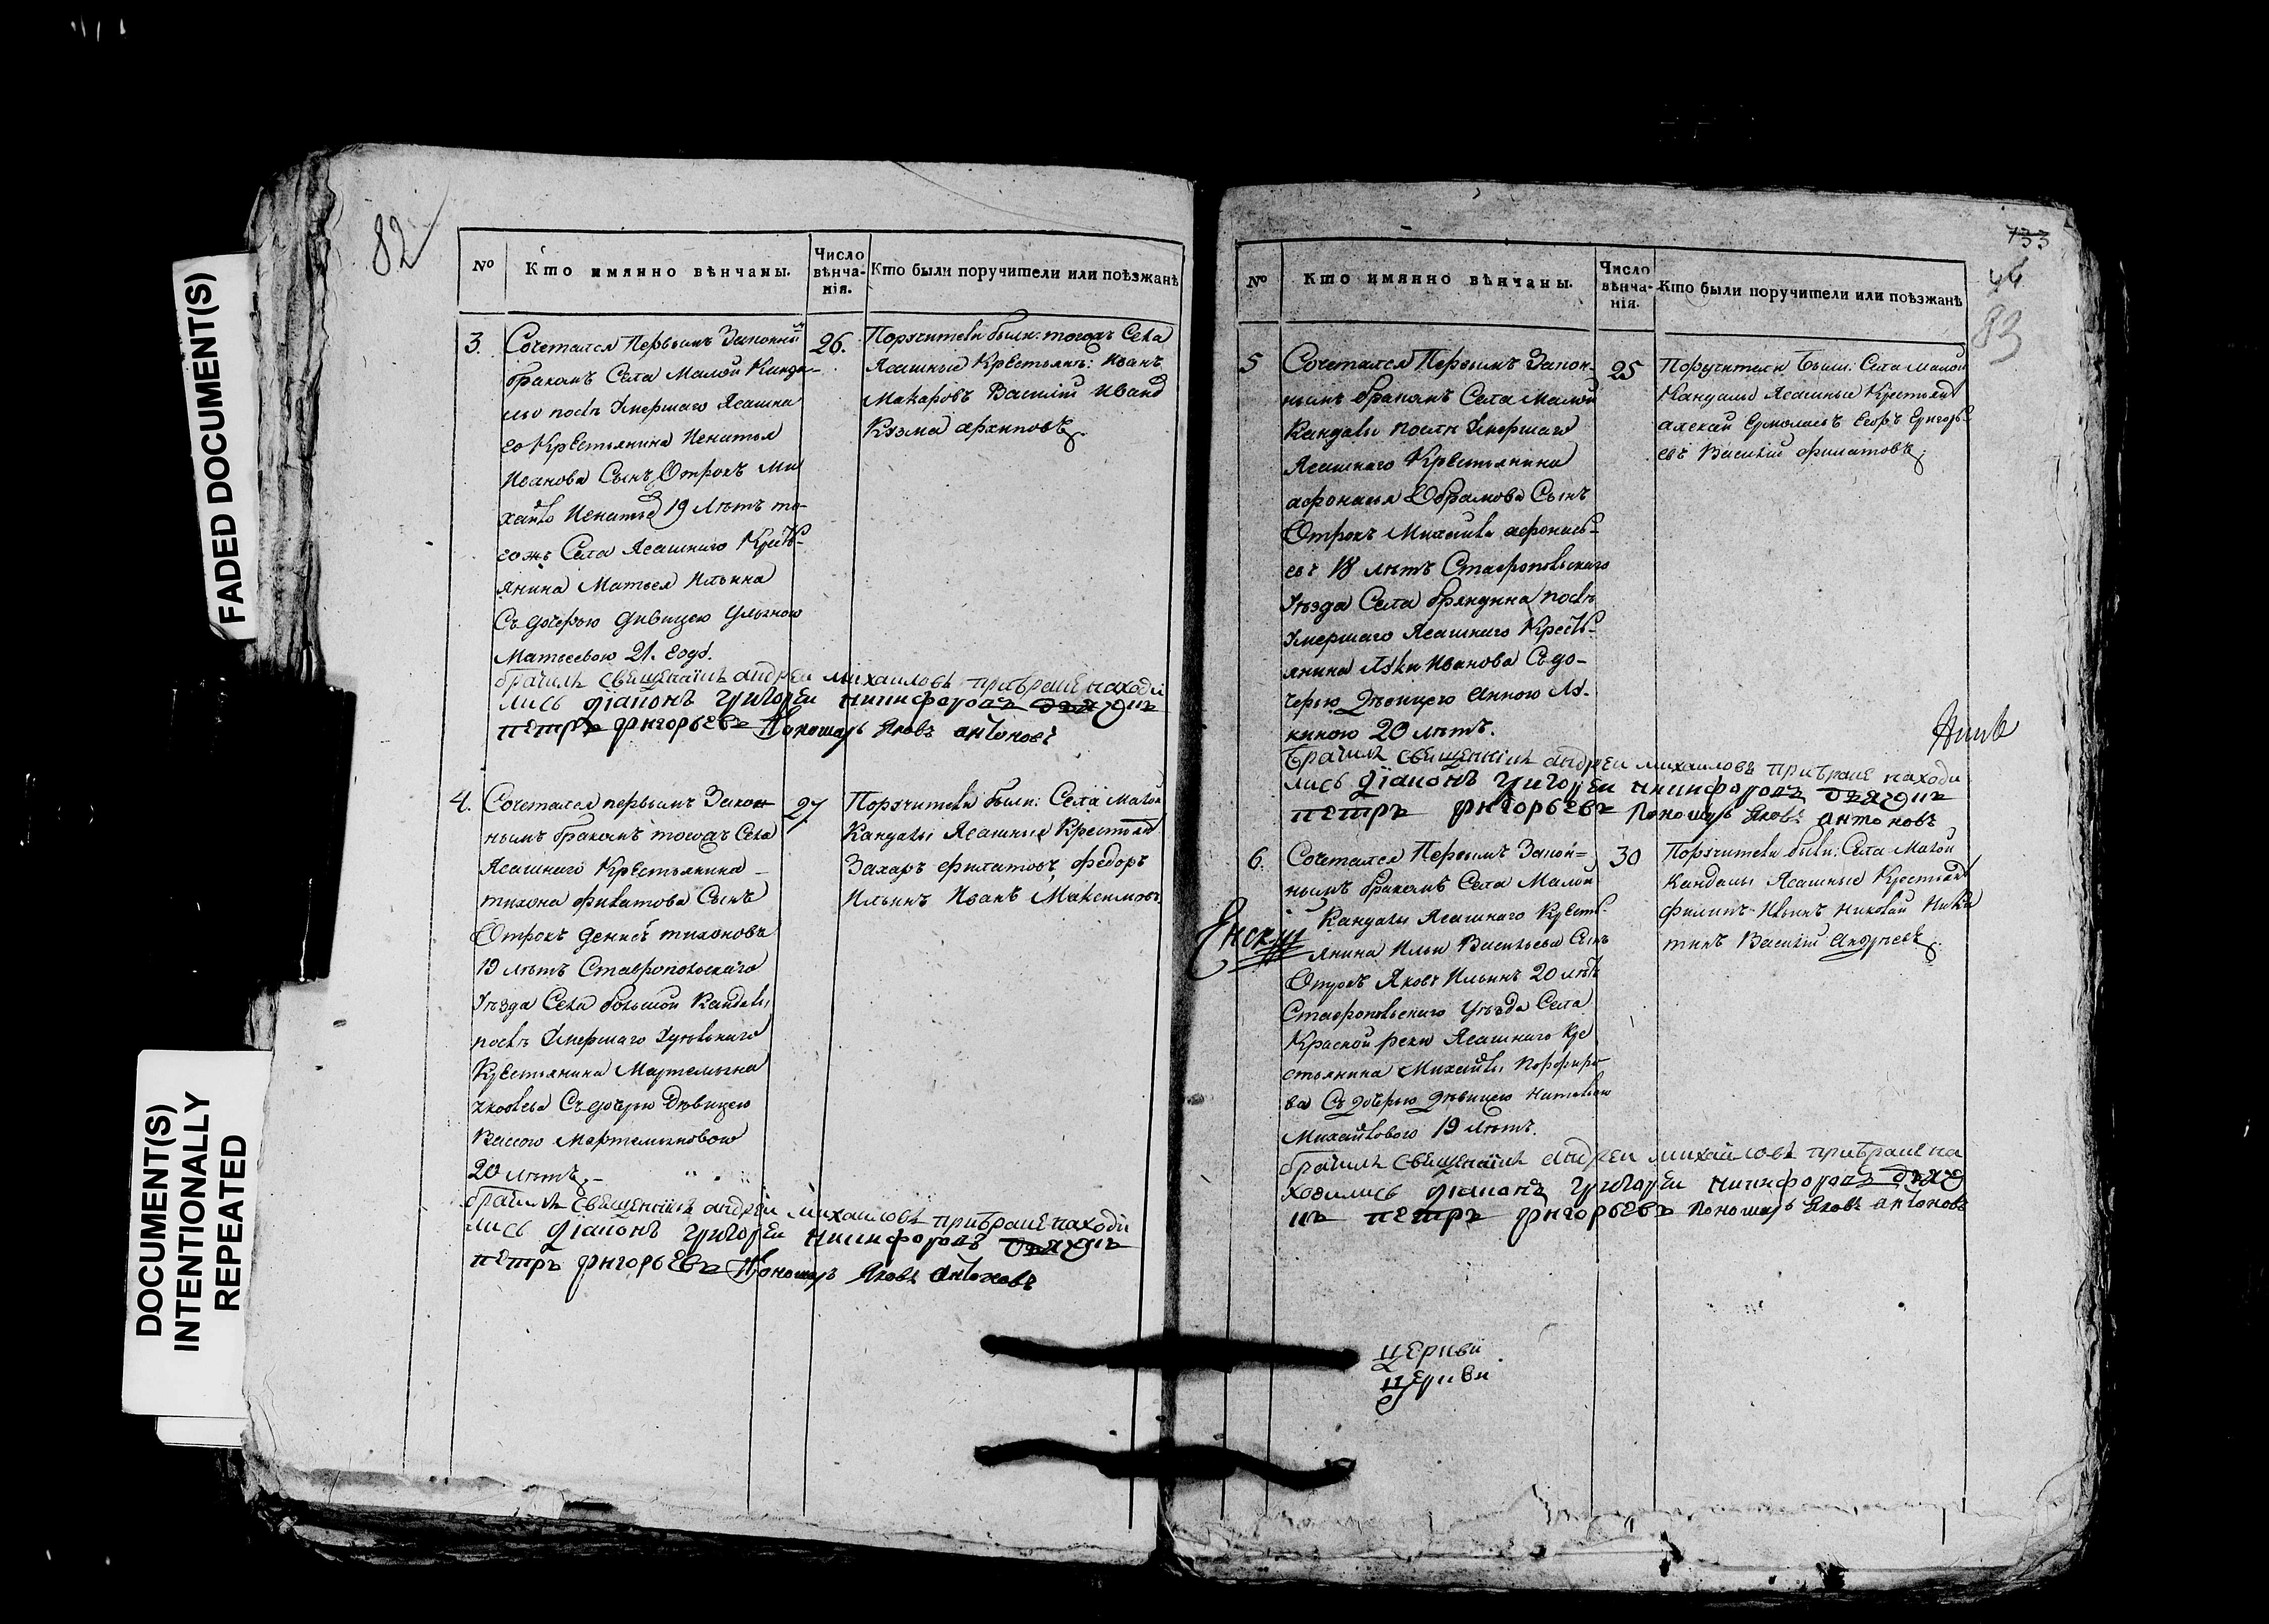 FADED DOCUMENT(S)
DOCUMENT(S)
INTENTIONALLY
REPEATED
82
№
Кто имянно вѣнчаны.
Число
вѣнча-
нія.
Кто были поручители или поѣзжанѣ
3.
Сочетался Первымъ Законны
м
бракомъ Села Малой Канда-
лы послѣ Умершаго Ясашна
го Крестьянина Игнатья
Иванова Сынъ Отрокъ Ми
хайло Игнатье 19 лѣтъ то-
гожъ Села Ясашнаго Кресть-
янина Матвея Ильина
Съ дочерью дивицею Ульяною
Матвеевою 21. годъ.
26.
Поручители были: тогожъ Села
Ясашные Крестьяне: Иванъ
Макаровъ Василий Иванъ
Козма архиповъ.
брачилъ свещенникъ андреи михаиловъ прибраце находи
лись діаконъ григореи никифоровъ дьячекъ
петръ григорьевъ Пономарь Яковъ антоновъ
4.
Сочетался первымъ Закон
нымъ бракомъ тогожъ Села
Ясашнаго Крестьянина
тихона филатова Сынъ
Отрокъ денисъ тихоновъ
19 лѣтъ Ставропольскаго
Уѣзда Села большой Кандалы
послѣ Умершаго Удѣльнаго
Крестьянина Мартемьяна
Яковлева Съ дочерью Дѣвицею
Вассою Мартемьяновою
20 лѣтъ.
27
Поручители были: Села Малой
Кандалы Ясашные Крестьяне
Захаръ филатовъ, федоръ
Ильинъ Иванъ Максимовъ
брачилъ свещенникъ андреи михаиловъ прибраце находи
лись діаконъ григореи никифоровъ дьячекъ
петръ григорьевъ Пономарь Яковъ антоновъ
133
44
83
№
Кто имянно вѣнчаны.
Число
вѣнча-
нія.
Кто были поручители или поѣзжанѣ
5
Сочетался Первымъ Закон-
нымъ бракомъ Села Малой
Кандалы послѣ Умершаго
Ясашнаго Крестьянина
афонасья Абрамова Сынъ
Отрокъ Михаила афонась-
евъ 18 лѣтъ Ставропольскаго
Уѣзда Села бряндина послѣ
Умершаго Ясашнаго Кресть-
янина Луки Иванова Съ до-
черью Дѣвицею Анною Лу-
киною 20 лѣтъ.
25
Поручители Были: Села малой
Кандалы Ясашные Крестьяне
алексай Ермолаевъ Егоръ Григорь-
евъ Василий филатовъ.
Брачилъ свещенникъ андреи михаиловъ прибраце находи
лись діаконъ григореи никифоровъ дьячекъ
петръ григорьевъ Пономарь Яковъ антоновъ
6.
Сочетался Первымъ Закон-
нымъ бракомъ Села Малой
Кандалы Ясашнаго Кресть-
янина Ильи Васильева Сынъ
Отрокъ Яковъ Ильинъ 20 лѣтъ
Ставропольскаго Уѣзда Села
Красной реки Ясашнаго Кре
стьянина Михайлы Порфирь
ва Съ дочерью дѣвицею Натальею
Михайловою 19 лѣтъ.
30
Поручители были: Села Малой
Кандалы Ясашные Крестьяне
филипъ Ильинъ Николай Ники
тинъ Василий Андреевъ.
брачилъ свещенникъ андреи михаиловъ прибраце на
ходились діаконъ григореи никифоровъ дьяче
къ петръ григорьевъ Пономарь Яковъ антоновъ
церкви
церкви